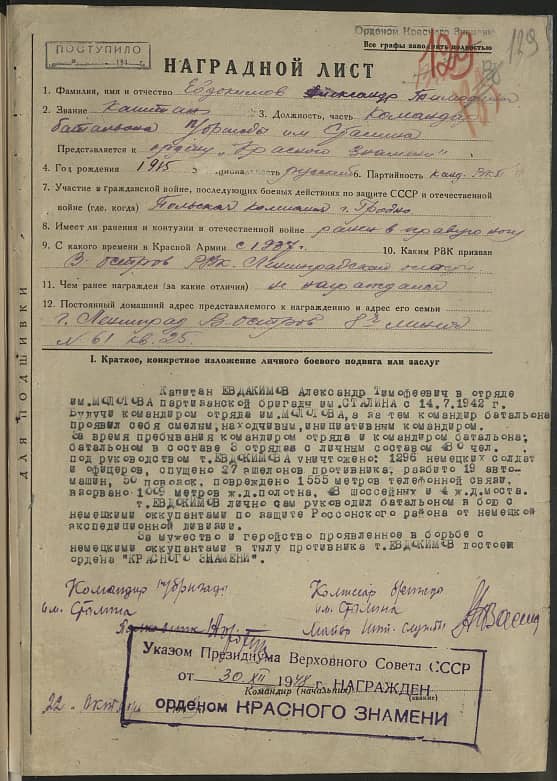 Орденом Красного Знамени
Все графы заполнять полностью
ПОСТУПИЛО
129
129
НАГРАДНОЙ ЛИСТ
1. Фамилия, имя и отчество Евдокимов Александр Тимофеевич
2. Звание Капитан 3. Должность, часть Командир
батальона п/бригады им Сталина
Представляется к ордену "Красного Знамени"
4. Год рождения 1915 русский 6. Партийность канд.
7. Участие в гражданской войне, последующих боевых действиях по защите СССР и отечественной
войне (где, когда) Польская кампания г. Гродно
8. Имеет ли ранения и контузии в отечественной войне ранен в правую ногу
9. С какого времени в Красной Армии с 1937г. 10. Каким РВК призван
В-остров РВК. Ленинградской области
11. Чем ранее награжден (за какие отличия) не награждался
12. Постоянный домашний адрес представляемого к награждению и адрес его семьи
г. Ленинград В-остров 8я линия
№ 61 кв. 25.
ДЛЯ ПОДШИВКИ
I. Краткое, конкретное изложение личного боевого подвига или заслуг
Капитан ЕВДАКИМОВ Александр Тимофеевич в отряде
им.МОЛОТОВА партизанской бригады им.СТАЛИНА с 14.7.1942 г.
Будучи командиром отряда им.МОЛОТОВА,а за тем командир батальона
проявил себя смелым,находчивым,инициативным командиром.
За время пребывания командиром отряда и командиром батальона;
батальоном в составе 3 отрядов с личным составом 480 чел.
под руководством т.ЕВДАКИМОВА уничтожено: 1296 немецких солдат
и офицеров, спущено 27 эшелонов противника, разбито 19 авто-
машин, 50 повозок, повреждено 1555 метров телефонной связи,
взорвано 1009 метров ж.д.полотна, 48 шоссейных и 4 ж.д.моста.
т.ЕВДАКИМОВ лично сам руководил батальоном в бою с
немецкими оккупантами по защите Россонского района от немецкой
экспедиционной дивизии.
За мужество и геройство проявленное в борьбе с
немецкими оккупантами в тылу противника т.ЕВДОКИМОВ достоен
ордена "КРАСНОГО ЗНАМЕНИ".
Командир п/бригады
им. Сталина
Комиссар бригады
им. Сталина
Майор инт. службы
Указом Президиума Верховного Совета СССР
от 30/XII 1948 г. НАГРАЖДЕН
Командир (начальник) (звание)
орденом КРАСНОГО ЗНАМЕНИ
22 Октября